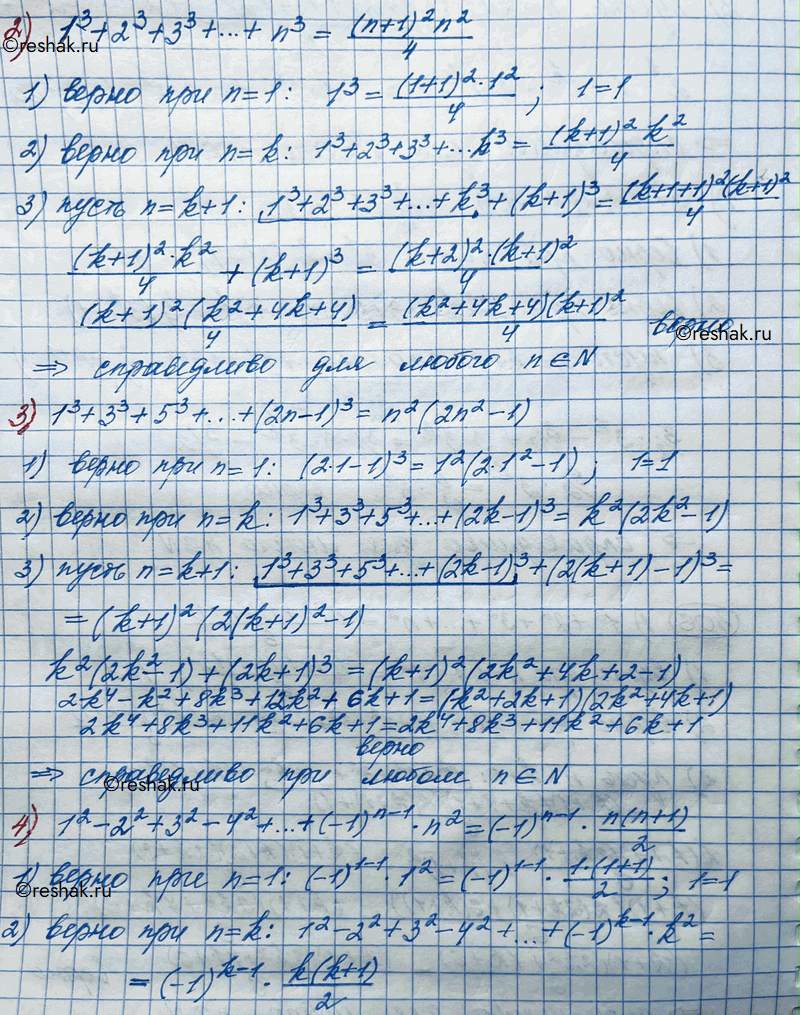 2) 1³+2³+3³+...+ n³ = (n+1)² n² / 4
©reshak.ru
1) верно при n=1: 1³ = (1+1)²·1² / 4 ; 1=1
2) верно при n=k: 1³+2³+3³+...k³ = (k+1)² k² / 4
3) пусть n=k+1: 1³+2³+3³+...+k³+(k+1)³ = (k+1+1)²(k+1)² / 4
(k+1)²·k² / 4 + (k+1)³ = (k+2)²·(k+1)² / 4
(k+1)²(k²+4k+4) / 4 = (k²+4k+4)(k+1)² / 4 верно
©reshak.ru
⇒ справедливо для любого n∈N
3) 1³+3³+5³+...+(2n-1)³ = n²(2n²-1)
1) верно при n=1: (2·1-1)³ = 1²(2·1²-1) ; 1=1
2) верно при n=k: 1³+3³+5³+...+(2k-1)³ = k²(2k²-1)
3) пусть n=k+1: 1³+3³+5³+...+(2k-1)³+(2(k+1)-1)³ =
= (k+1)²(2(k+1)²-1)
k²(2k²-1)+(2k+1)³ = (k+1)²(2k²+4k+2-1)
©reshak.ru
2k⁴-k²+8k³+12k²+6k+1 = (k²+2k+1)(2k²+4k+1)
2k⁴+8k³+11k²+6k+1 = 2k⁴+8k³+11k²+6k+1
верно
⇒ справедливо при любом n∈N
©reshak.ru
4) 1²-2²+3²-4²+...+(-1)ⁿ⁻¹·n² = (-1)ⁿ⁻¹· n(n+1) / 2
1) верно при n=1: (-1)¹⁻¹·1² = (-1)¹⁻¹· 1·(1+1) / 2 ; 1=1
©reshak.ru
2) верно при n=k: 1²-2²+3²-4²+...+(-1)ᵏ⁻¹·k² =
= (-1)ᵏ⁻¹· k(k+1) / 2